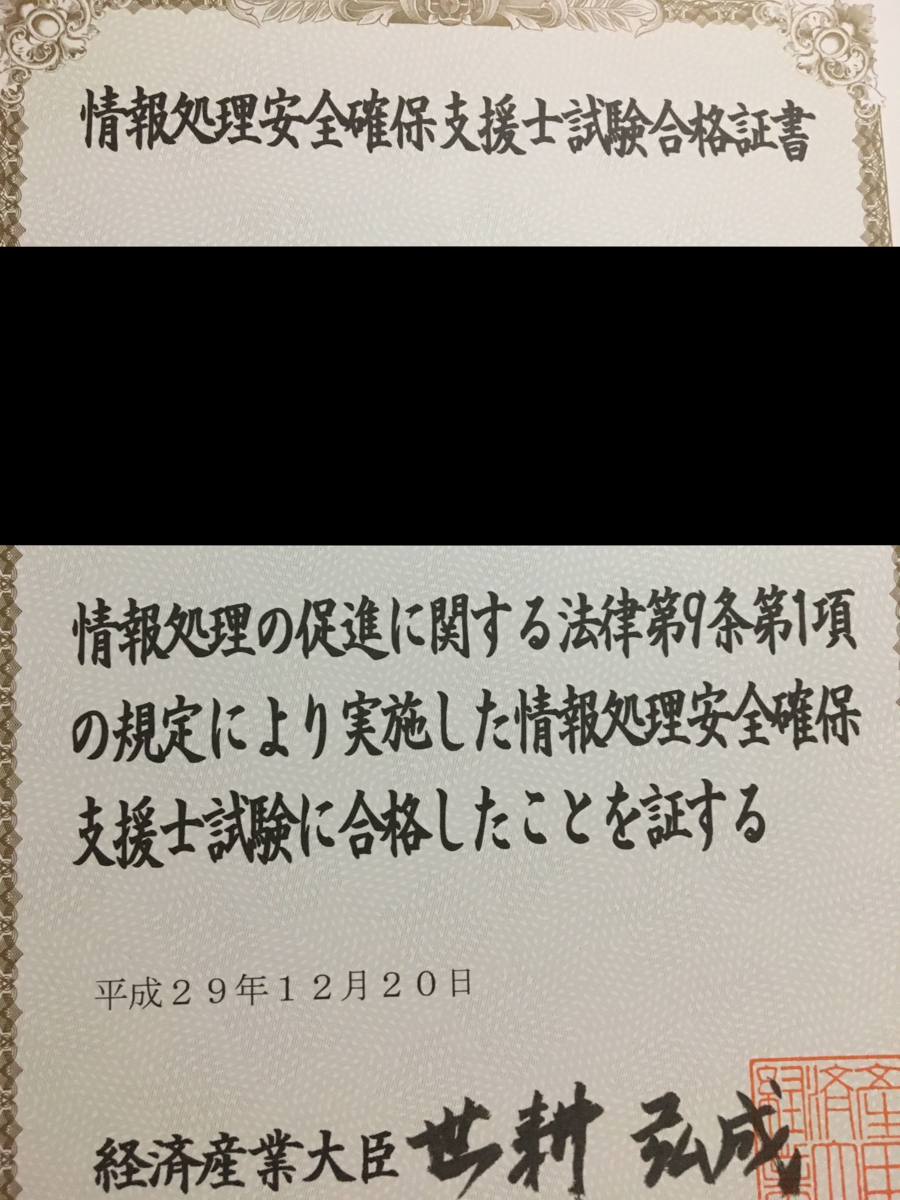 情報処理安全確保支援士試験合格証書
情報処理の促進に関する法律第9条第1項
の規定により実施した情報処理安全確保
支援士試験に合格したことを証する
平成２９年１２月２０日
経済産業大臣 世耕 弘成